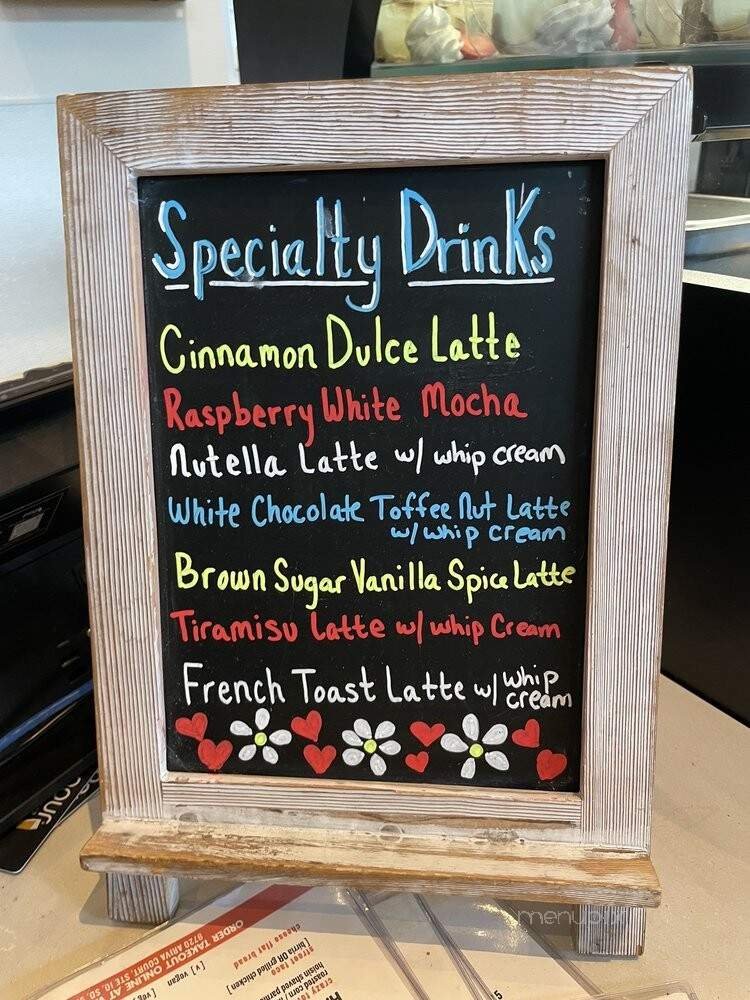 Specialty Drinks
Cinnamon Dulce Latte
Raspberry White Mocha
Nutella Latte w/ whip cream
White Chocolate Toffee Nut Latte
w/ whip cream
Brown Sugar Vanilla Spice Latte
Tiramisu Latte w/ whip cream
French Toast Latte w/ whip
cream
menupix
ORDER TAKEOUT ONLINE AT
9720 ARIVA COURT, STE 10, SO.
[v] vegan
choose flat bread
[ birria OR grilled chicken ]
street taco